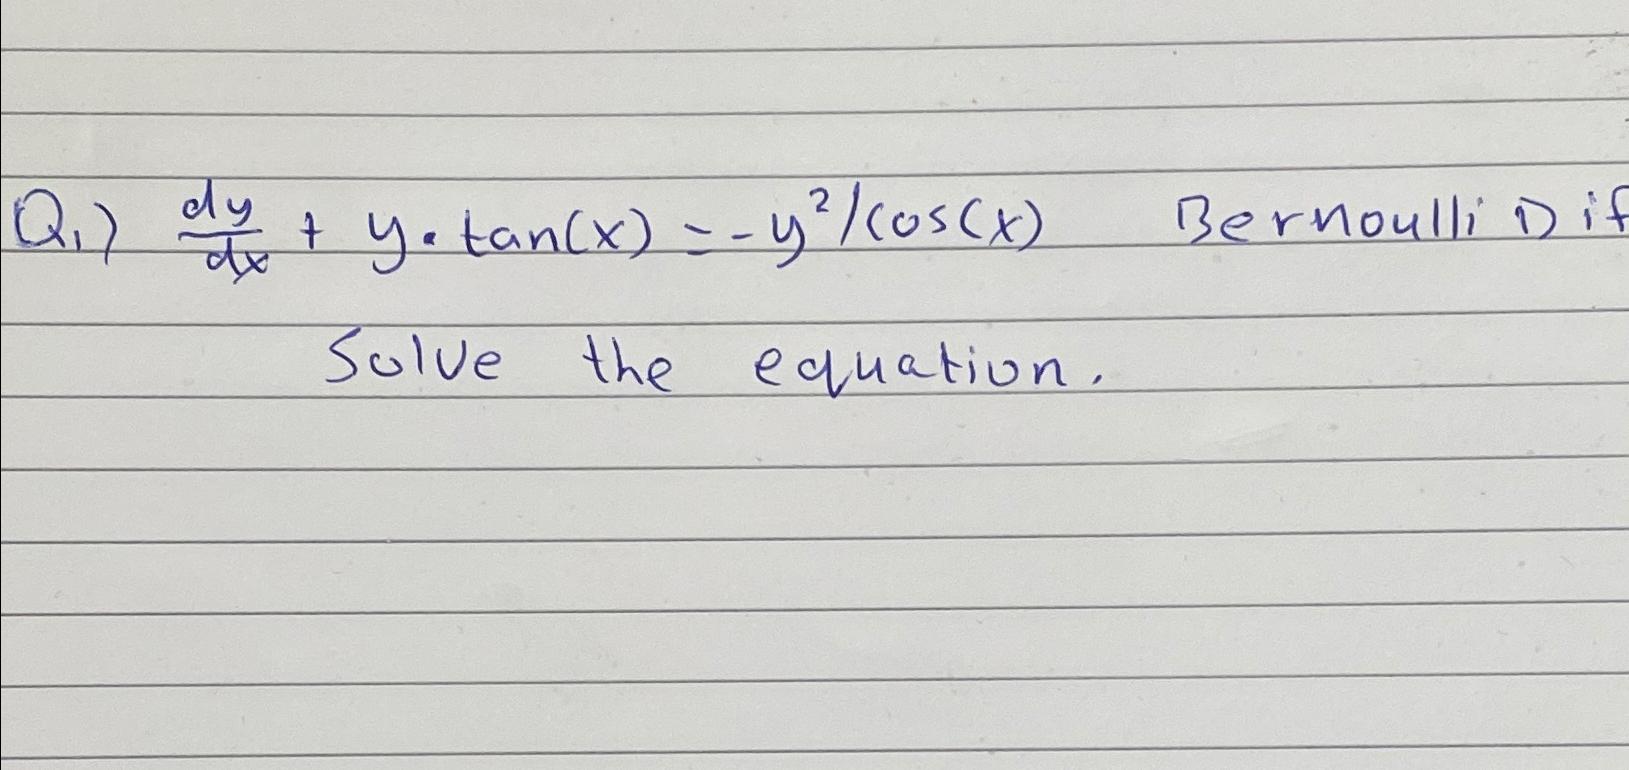 Q₁) dy/dx + y·tan(x) = -y²/cos(x) Bernoulli Dif
Solve the equation.